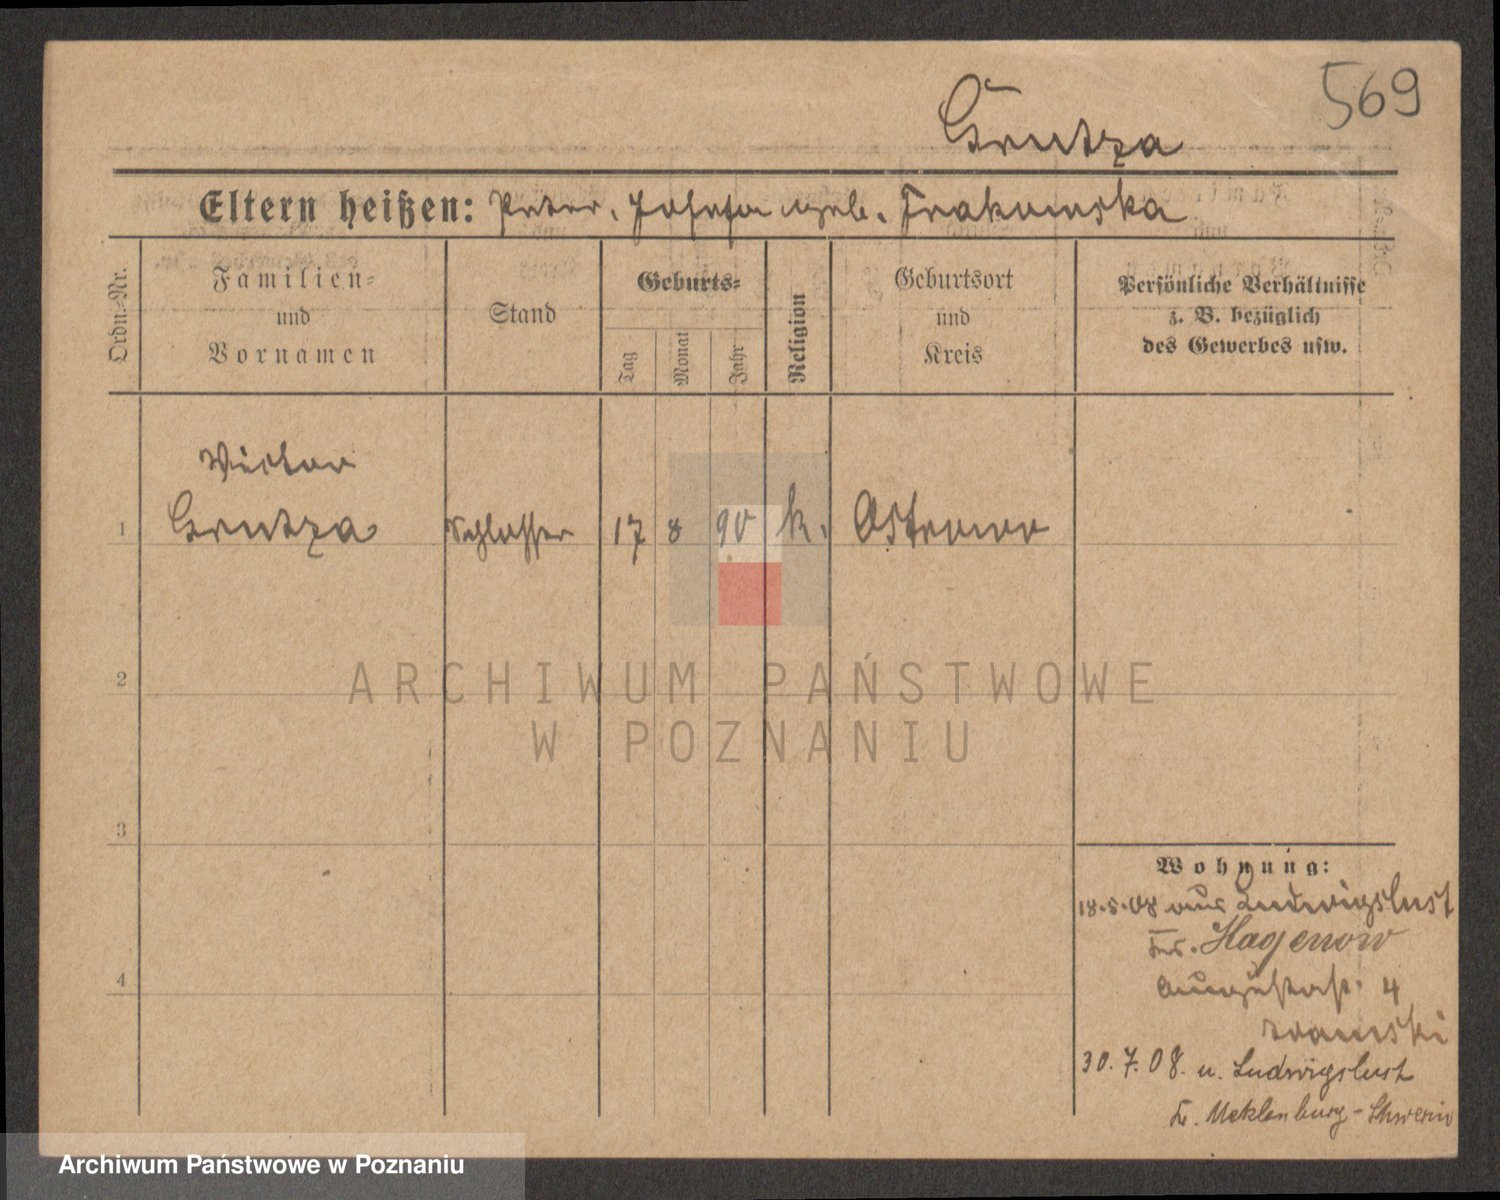 569
Grutza
Eltern heißen: Peter, Josefa geb. Trakowska
Ordn.-Nr.
Familien-
und
Vornamen
Stand
Geburts-
Tag
Monat
Jahr
Religion
Geburtsort
und
Kreis
Persönliche Verhältnisse
z. B. bezüglich
des Gewerbes usw.
Victor
1 Grutza Schlosser 17 8 90 k. Ostrowo
2
ARCHIWUM PAŃSTWOWE
W POZNANIU
3
4
Wohnung:
18.5.08 aus Ludwigslust
Kr. Hagenow
Augustastr. 4
30.7.08. n. Ludwigslust
Kr. Meklenburg-Schwerin
Archiwum Państwowe w Poznaniu